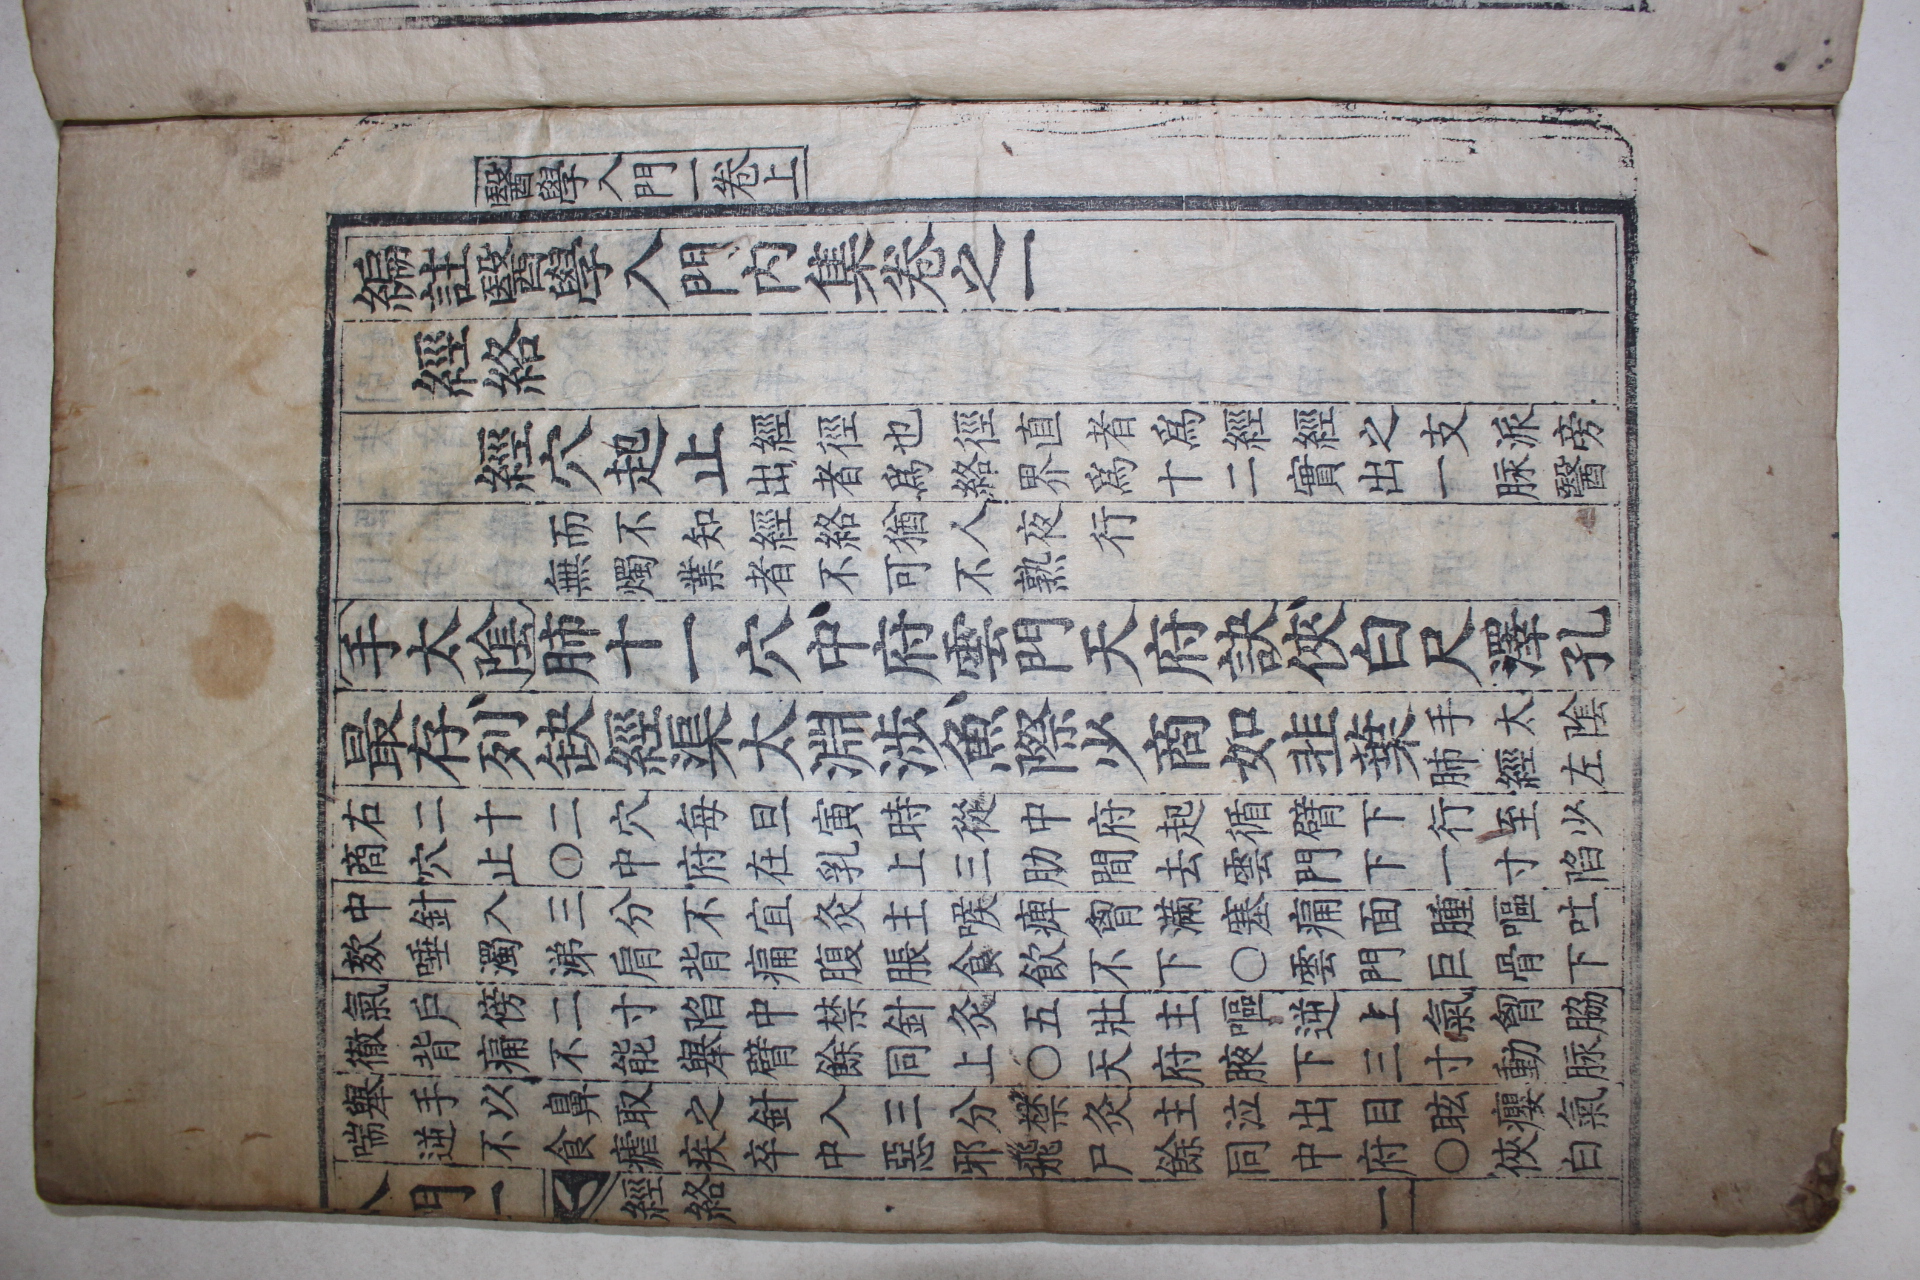 醫學入門一卷上
編註醫學入門內集卷之一
經絡
經穴起止
經徑也徑直者爲經經之支派旁
出者爲絡界爲十二實出一脉醫
而不知經絡猶人夜行
無燭業者不可不熟
手太陰肺十一穴中府雲門天府訣俠白尺澤孔
最存列缺經渠太淵涉魚際少商如韭葉
手太陰
肺經左
右二十二穴每旦寅時從中府起循臂下行至少
商穴止○中府在乳上三肋間去雲門下一寸陷
中針入三分不宜灸主喉痺胷滿塞痛面腫嘔吐
欬唾濁涕肩背痛腹脹食飮不下○雲門巨骨下
氣戶傍二寸陷中禁針灸五壯主嘔逆上氣胷脇
徹背痛不能舉臂餘同上○天府腋下三寸動脉
舉手以鼻取之針入三分禁灸主泣出目眩癭氣
喘逆不食瘧疾卒中惡邪飛尸餘同中府○俠白
入門一
經絡
一